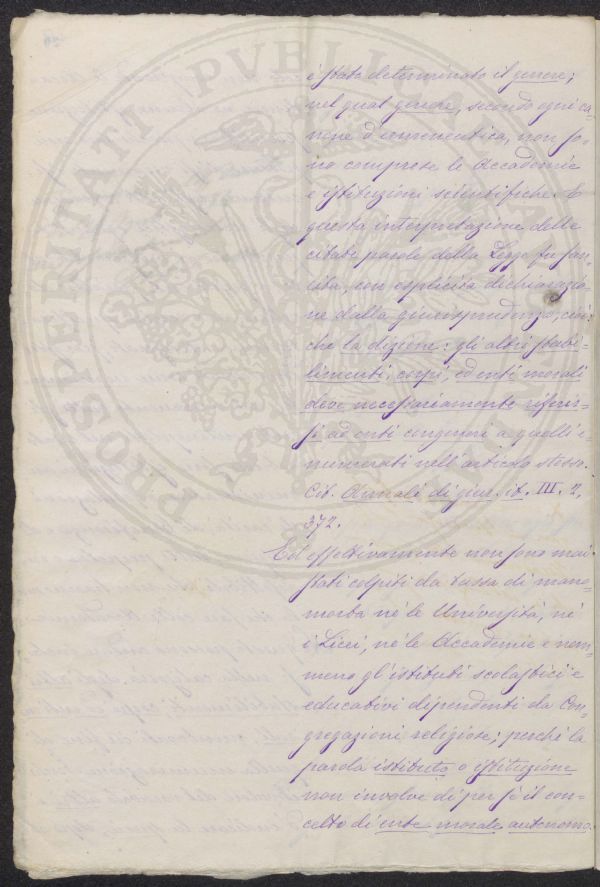 PROSPERITATI PVBLICAE
è stato determinato il genere;
nel qual genere, secondo ogni ca-
none d'ermeneutica, non so-
no comprese le Accademie
e istituzioni scientifiche. E
questa interpretazione delle
citate parole della Legge fu san-
cita, con esplicita dichiarazio-
ne dalla giurisprudenza, cioè:
che la dizione: gli altri stabi-
limenti, corpi, ed enti morali
deve necessariamente riferir-
si ad enti congeneri a quelli e-
numerati nell'articolo stesso.
Cit. Annali di giur. it. III. 2,
372.
Ed effettivamente non sono mai
stati colpiti da tassa di mano-
morta nè le Università, nè
i Licei, nè le Accademie e nem-
meno gl'istituti scolastici e
educativi dipendenti da Con-
gregazioni religiose; perchè la
parola istituto o istituzione
non involve di per sè il con-
cetto di ente morale autonomo.